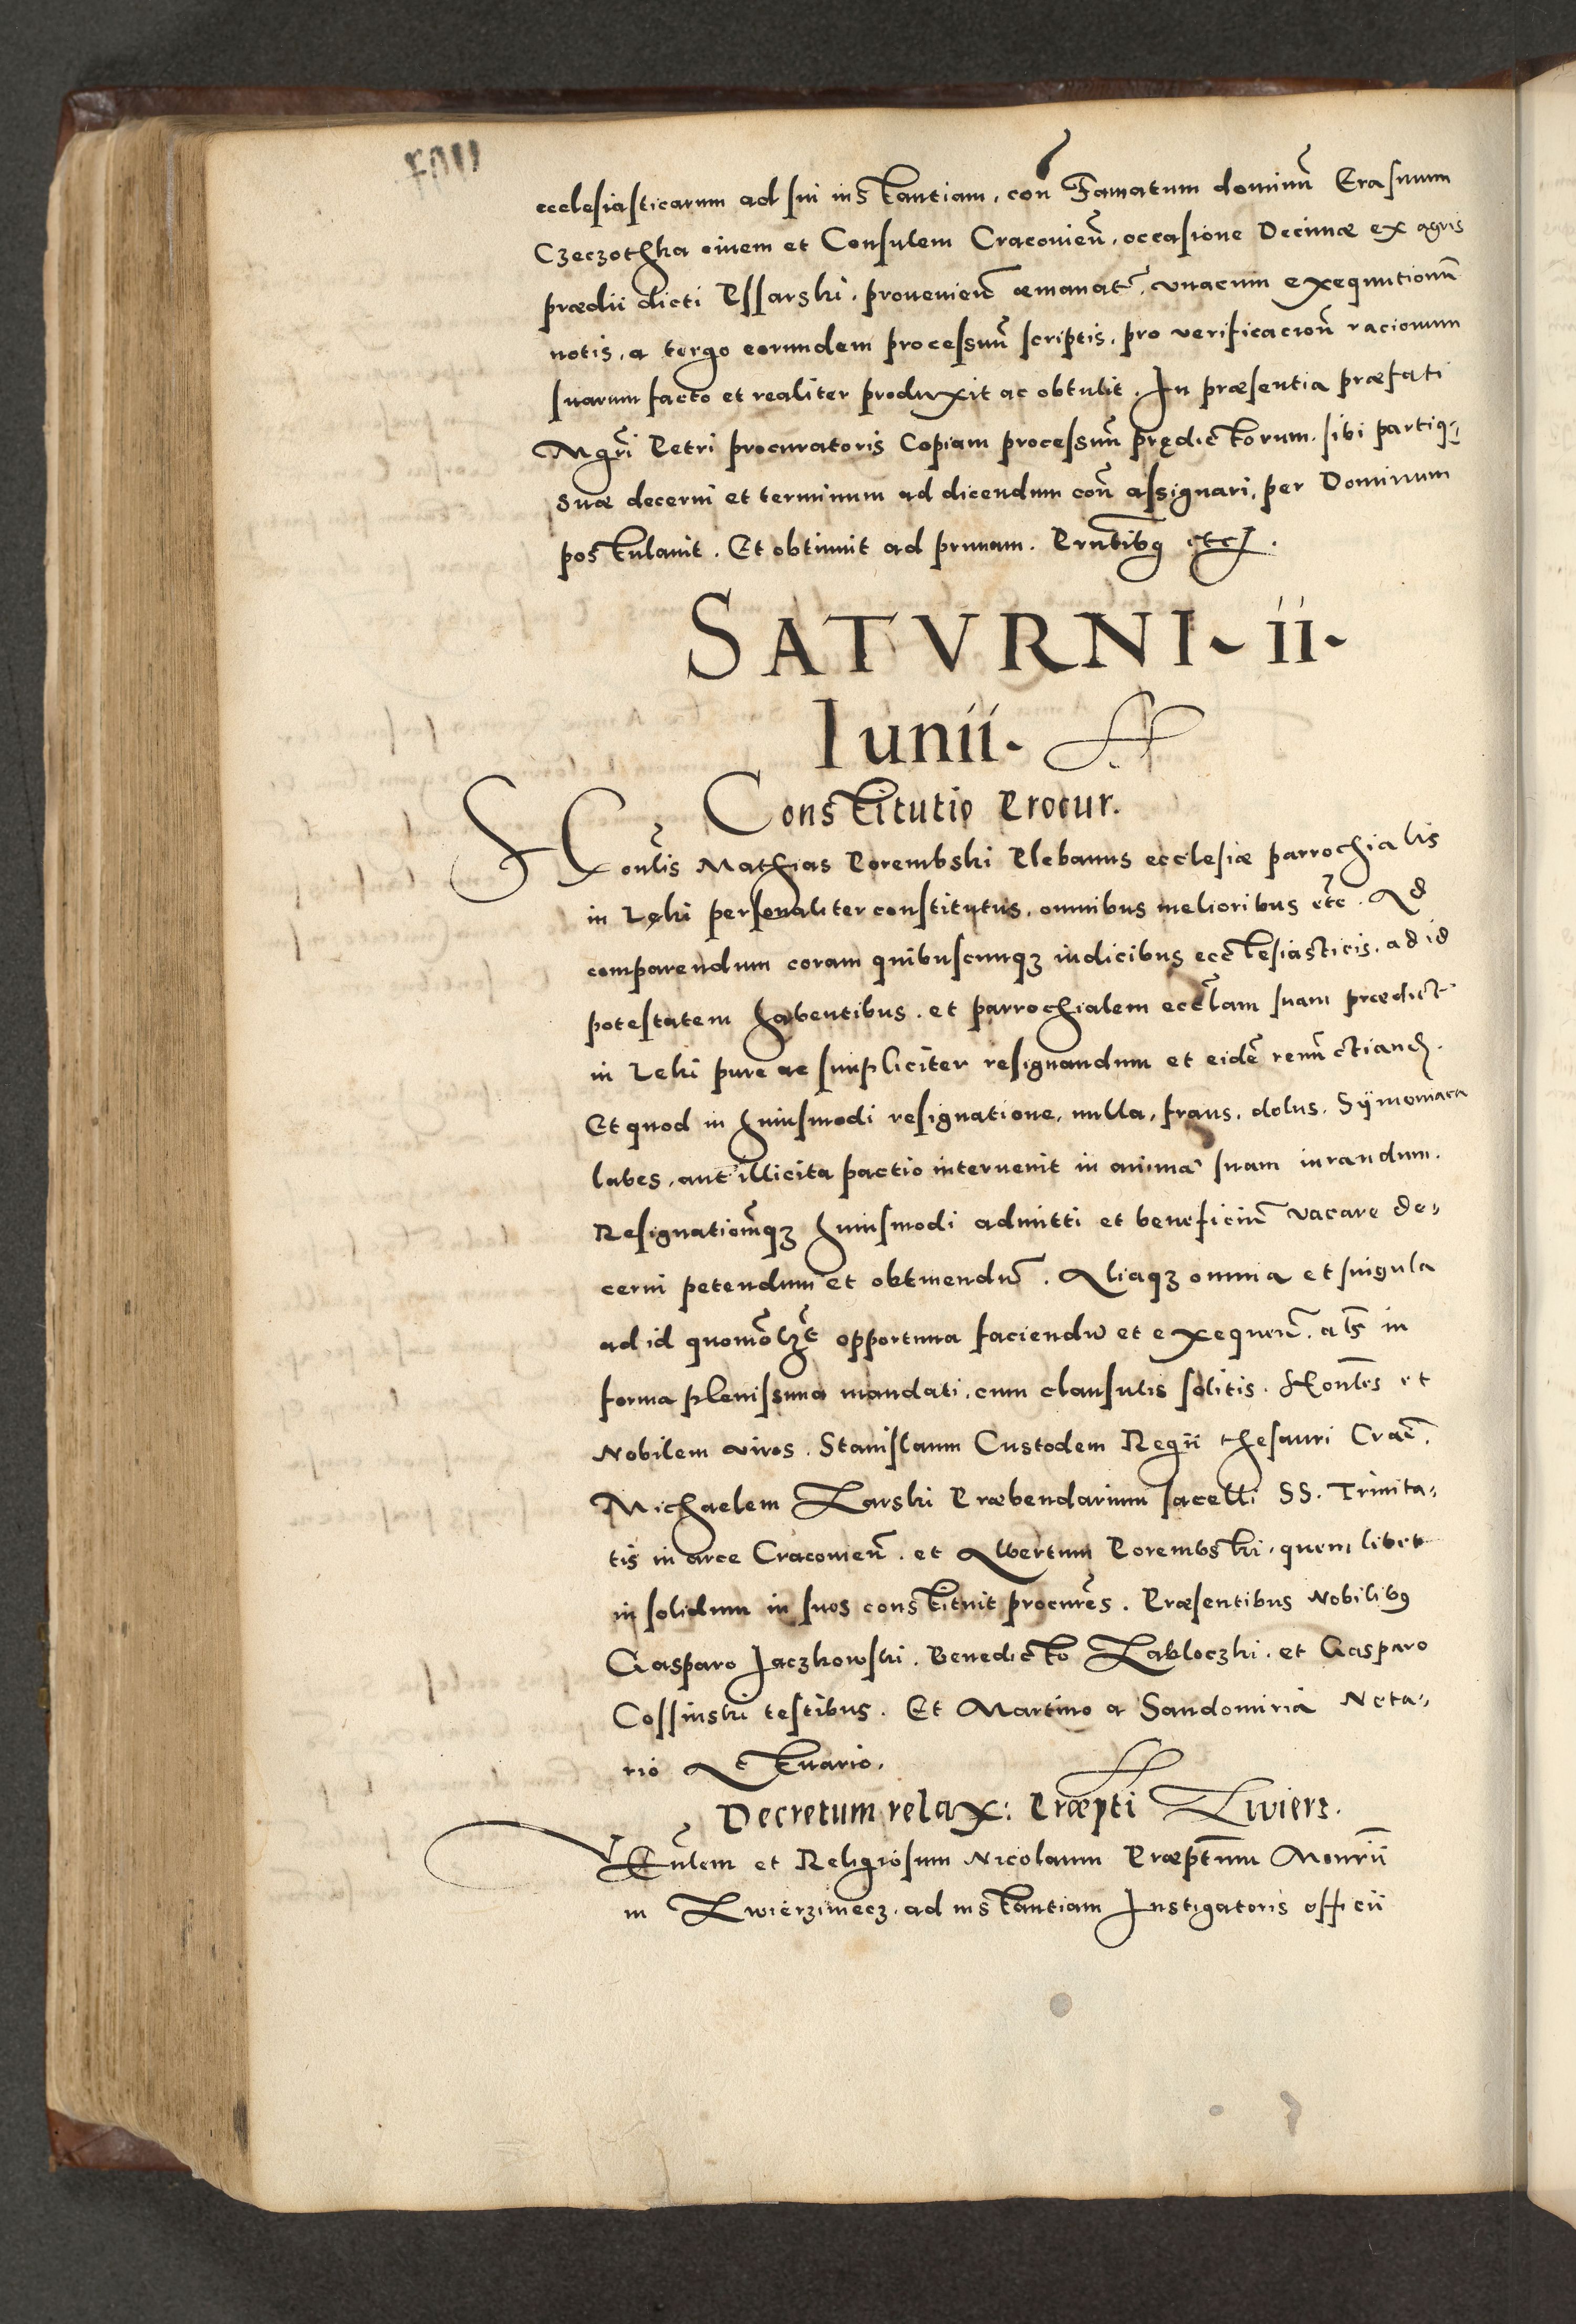 ecclesiasticarum ad sui instantiam, con̄ Famatum dominū Erasmum
Czeczothka civem et Consulem Cracovien̄, occasione Decimæ ex agris
prædii dicti Pssarski, provenien̄ æmanat̄, vnacum exequutionū
notis, a tergo eorundem processuū scriptis, pro verificacion̄ racionum
suarum facto et realiter produxit ac obtulit. In præsentia præfati
Mgr̄i Petri procuratoris Copiam processuū prędictorum, sibi partiq3
suæ decerni et terminum ad dicendum con̄ assignari, per Dominum
postulavit. Et obtinuit ad primam. Prn̄tibus etc.
SATVRNI ~ ii ~
Iunii ~
Constitutio Procur.
Hon̄lis Mathias Porembski Plebanus ecclesiæ parrochialis
in Lęki personaliter constitutus, omnibus melioribus etc. Ad
comparendum coram quibuscunq3 iudicibus ecclesiasticis, ad id
potestatem habentibus. et parrochialem eccl̄am suam prædict̄
in Leki pure ac simpliciter resignandum et eidē renūctiand.
Et quod in huiusmodi resignatione, nulla, fraus, dolus, Sÿmoniaca
labes, aut illicita pactio intervenit in animā suam iurandum.
Resignationēq3 huiusmodi admitti et beneficiū vacare de-
cerni petendum et obtinendū. Aliaq3 omnia et singula
ad id quomōlz̄t opportuna faciendū et exequen̄, al̄s in
forma plenissima mandati, cum clausulis solitis. Hon̄les et
Nobilem viros. Stanislaum Custodem Regii thesauri Crac̄.
Michaelem Zarski Præbendarium sacelli SS. Trinita-
tis in arce Cracovien̄. et Albertum Porembski, quemlibet
in solidum in suos constituit procur̄es. Præsentibus Nobilibus
Gasparo Jaczkowski. Benedicto Zabloczki. et Gasparo
Cossinski testibus. Et Martino a Sandomiria Nota-
rio Actuario.
Decretum relax: Præpti Zwierz.
Ven̄lem et Religiosum Nicolaum Præpt̄um Mon̄rii
in Zwierzinecz, ad instantiam Instigatoris officii